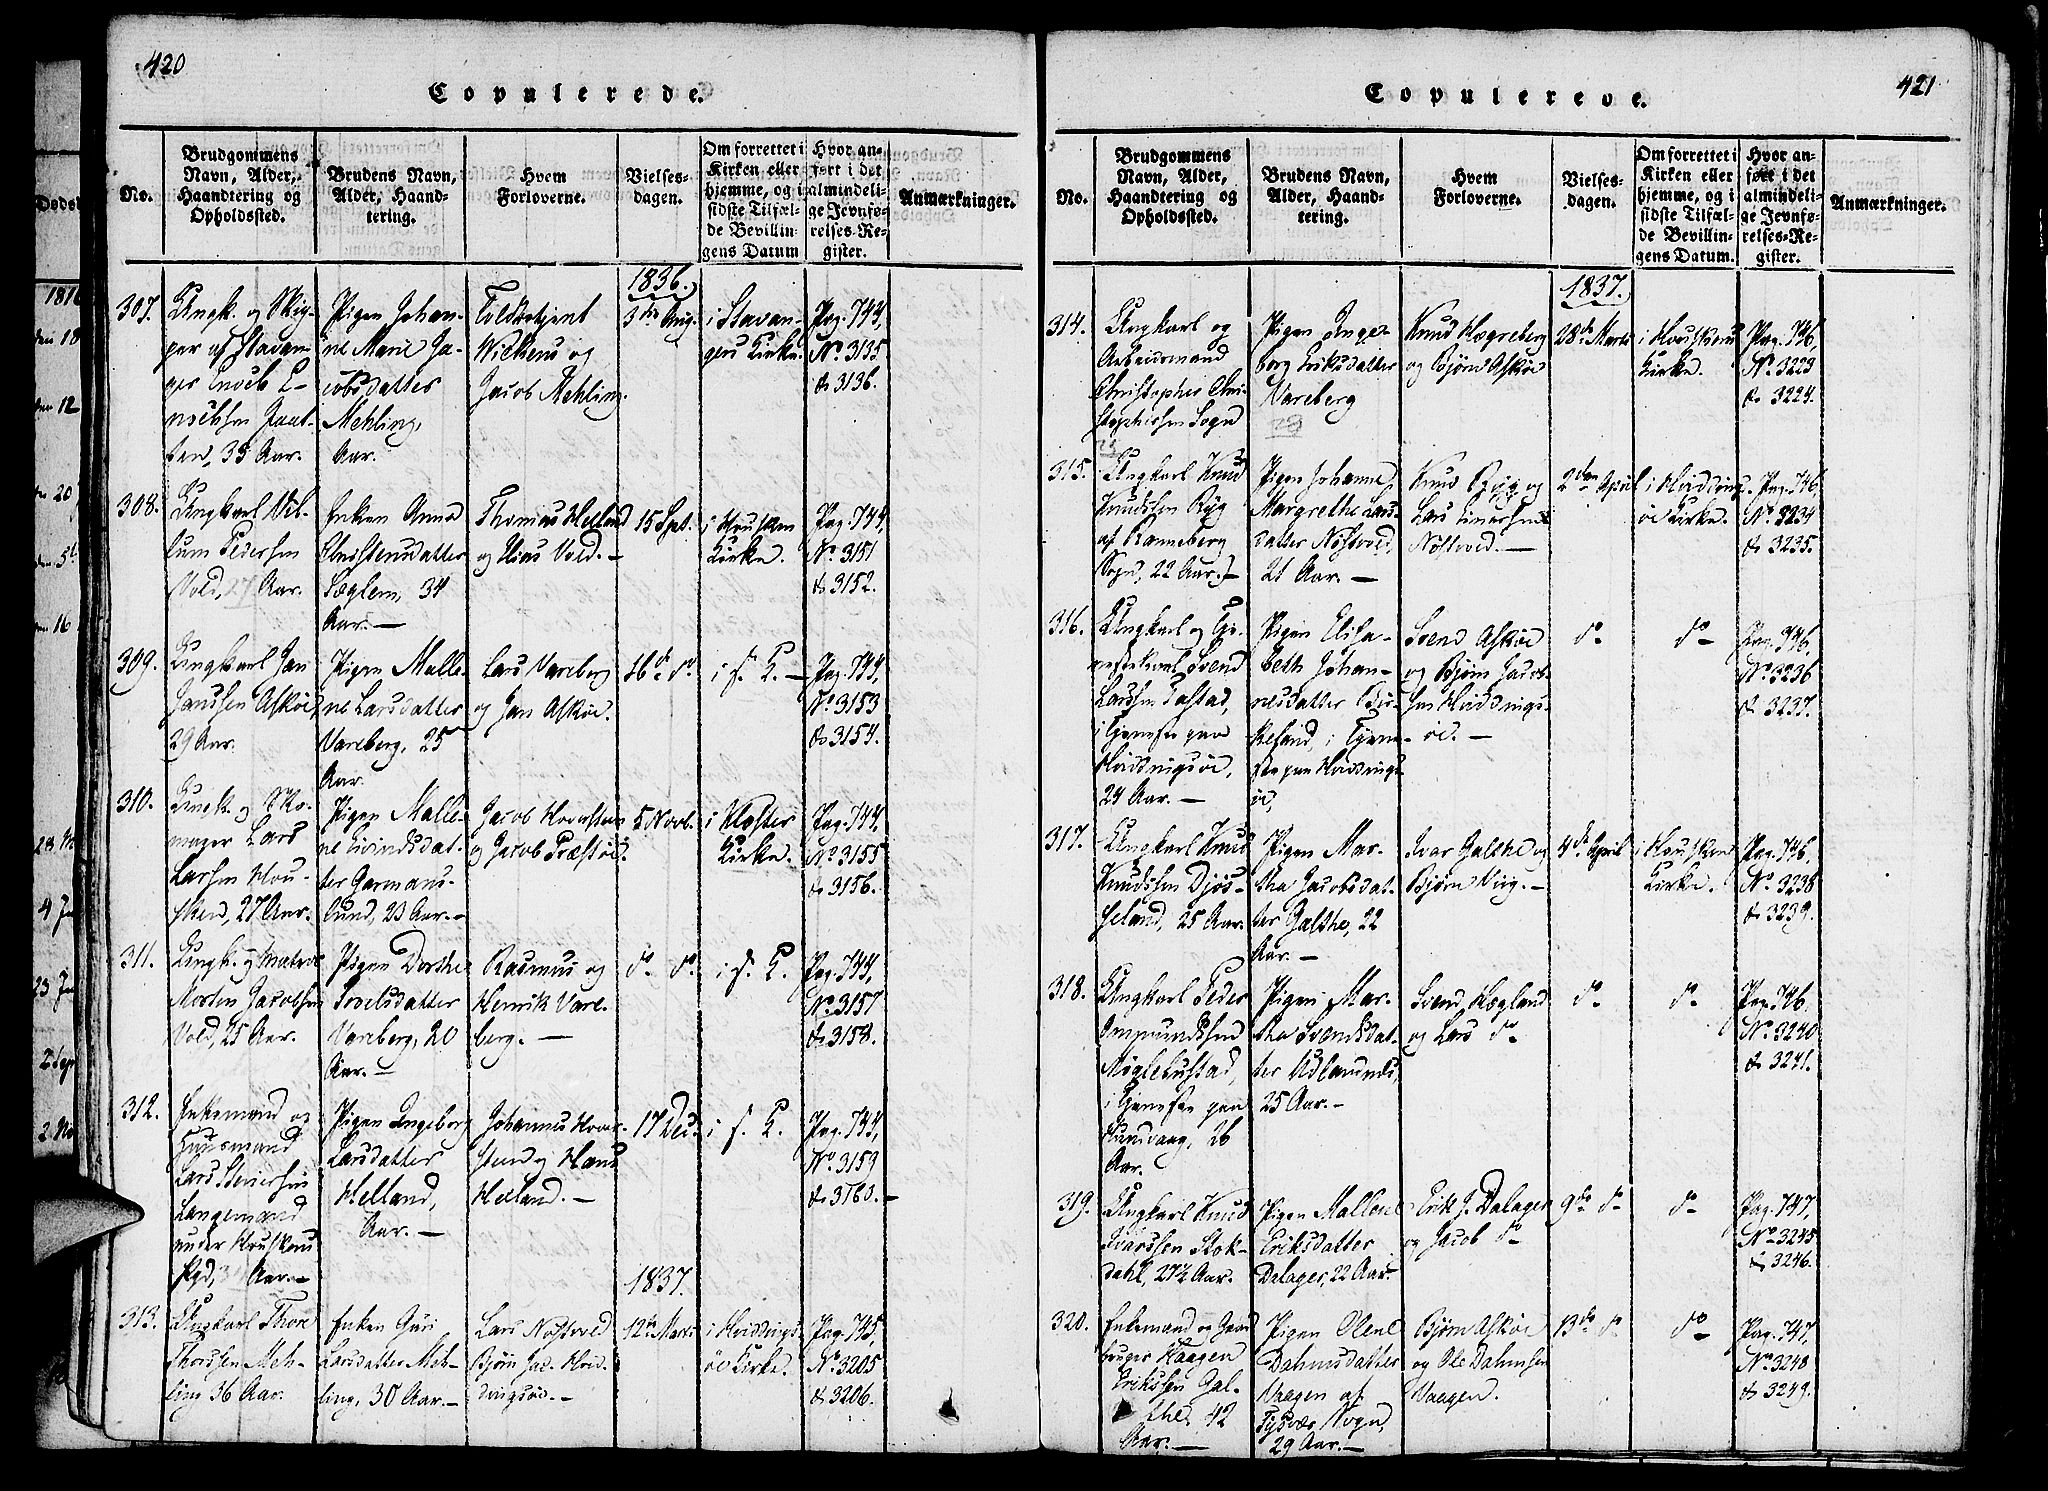 420
Copulerede.
No.
Brudgommens Navn, Alder, Haandtering og Opholdssted.
Brudens Navn, Alder, Haandtering.
Hvem Forloverne.
Vielsesdagen.
Om forrettet i Kirken eller hjemme, og i sidste Tilfælde Bevillingens Datum
Hvor anført i det almindelige Jevnførelses-Register.
Anmærkninger.
1836.
307.
Ungk. og Skipper af Stavanger Enoch Enochsen Jaatten, 35 Aar.
Pigen Johanne Marie Jacobsdatter Mehling, Aar.
Toldbetjent Wickens og Jacob Mehling.
3die Aug.
i Stavangers Kirke.
Pag. 744, No. 3135 & 3136.
308.
Ungkarl Villum Pedersen Vold, 27 Aar.
Enken Anna Christensdatter Sæglem, 34 Aar. —
Thomas Helland og Elias Vold. —
15 Spt.
i Houskens Kirke.
Pag. 744, No. 3151 & 3152.
309.
Ungkarl Jan Janssen Askøe, 29 Aar.
Pigen Mallene Larsdatter Vareberg, 25 Aar.
Lars Vareberg og Jan Askøe.
16de do
i s. K. —
Pag. 744, No. 3153 & 3154.
310.
Ungk. og Skomager Lars Larsen Housken, 27 Aar.
Pigen Mallene Eivindsdatter Garmanslund, 23 Aar. —
Jacob Hoversteen og Jacob Præstøe.
5 Novb.
i Kloster Kirke.
Pag. 744, No. 3155 & 3156.
311.
Ungk. og Matros Morten Jacobsen Vold, 25 Aar.
Pigen Dorthe Torelsdatter Vareberg, 20 Aar. —
Rasmus og Henrik Vareberg. —
do do
i s. K.
Pag. 744, No. 3157 & 3158.
312.
Enkemand og Huusmand Lars Steiersen Langemand under Houskens Pgd, Aar. —
Pigen Ingeborg Larsdatter Helland, Aar. —
Johannes Hoversteen og Hans Helland. —
17 Dec.
i s. K.
Pag. 744, No. 3159 & 3160. —
1837.
313.
Ungkarl Thore Thorssen Mehling 36 Aar.
Enken Guri Larsdatter Mehling, 30 Aar. —
Lars Nøstvold Bjørn Jac. Hviddingsøe. —
12te Marts
i Hviddingsøe Kirke.
Pag. 745, No. 3205 & 3206.
421
Copulerede.
No.
Brudgommens Navn, Alder, Haandtering og Opholdssted.
Brudens Navn, Alder, Haandtering.
Hvem Forloverne.
Vielsesdagen.
Om forrettet i Kirken eller hjemme, og i sidste Tilfælde Bevillingens Datum.
Hvor anført i det almindelige Jevnførelses-Register.
Anmærkninger.
1837.
314.
Ungkarl og Arbeidsmand Christopher Christophersen Sogn
Pigen Ingeborg Eriksdatter Vareberg
Knud Hægreberg og Bjørn Askøe
28de Marts
i Houskens Kirke.
Pag. 746, No. 3223 & 3224.
315.
Ungkarl Knud Knudsen Ryg af Ranneberg Sogn, 22 Aar. —
Pigen Johanne Margrethe Larsdatter Nøstvold, 21 Aar. —
Knud Ryg og Lars Einersen Nøstvold. —
2den April
i Hviddingsøe Kirke.
Pag. 746, No. 3234 & 3235.
316.
Ungkarl og Tjenestekarl Svend Larssen Tastad, i Tjeneste paa Hviddingsøe, 24 Aar. —
Pigen Elisabeth Johannesdatter Birkeland, i Tjeneste paa Hviddingsøe,
Svend Askøe og Bjørn Jacobsen Hviddingsøe. —
do
do
Pag. 746, No. 3236 & 3237.
317.
Ungkarl Knud Knudsen Djøseland, 25 Aar.
Pigen Martha Jacobsdatter Galthe, 22 Aar. —
Ivar Galthe og Bjørn Viig. —
4de April
i Houskens Kirke.
Pag. 746, No. 3238 & 3239.
318.
Ungkarl Peder Ommundsen Møglebustad, i Tjeneste paa Hundvaag, 26 Aar.
Pigen Martha Svendsdatter Udlaunds, 25 Aar. —
Svend Hægland og Lars do
do
do
Pag. 746, No. 3240 & 3241.
319.
Ungkarl Knud Ivarssen Stokdahl, 27½ Aar.
Pigen Mallene Eriksdatter Dalager, 22 Aar.
Erik J. Dalager og Jacob do
9de do
do
Pag. 747, No. 3245 & 3246.
320.
Enkemand og Gaardbruger Haagen Eriksen Galthe, 42 Aar. —
Pigen Olene Dahmsdatter Vaagen af Tysvær Sogn, 29 Aar. —
Bjørn Askøe og Ole Dahmsen Vaagen.
13de do
do
Pag. 747, No. 3248 & 3249.